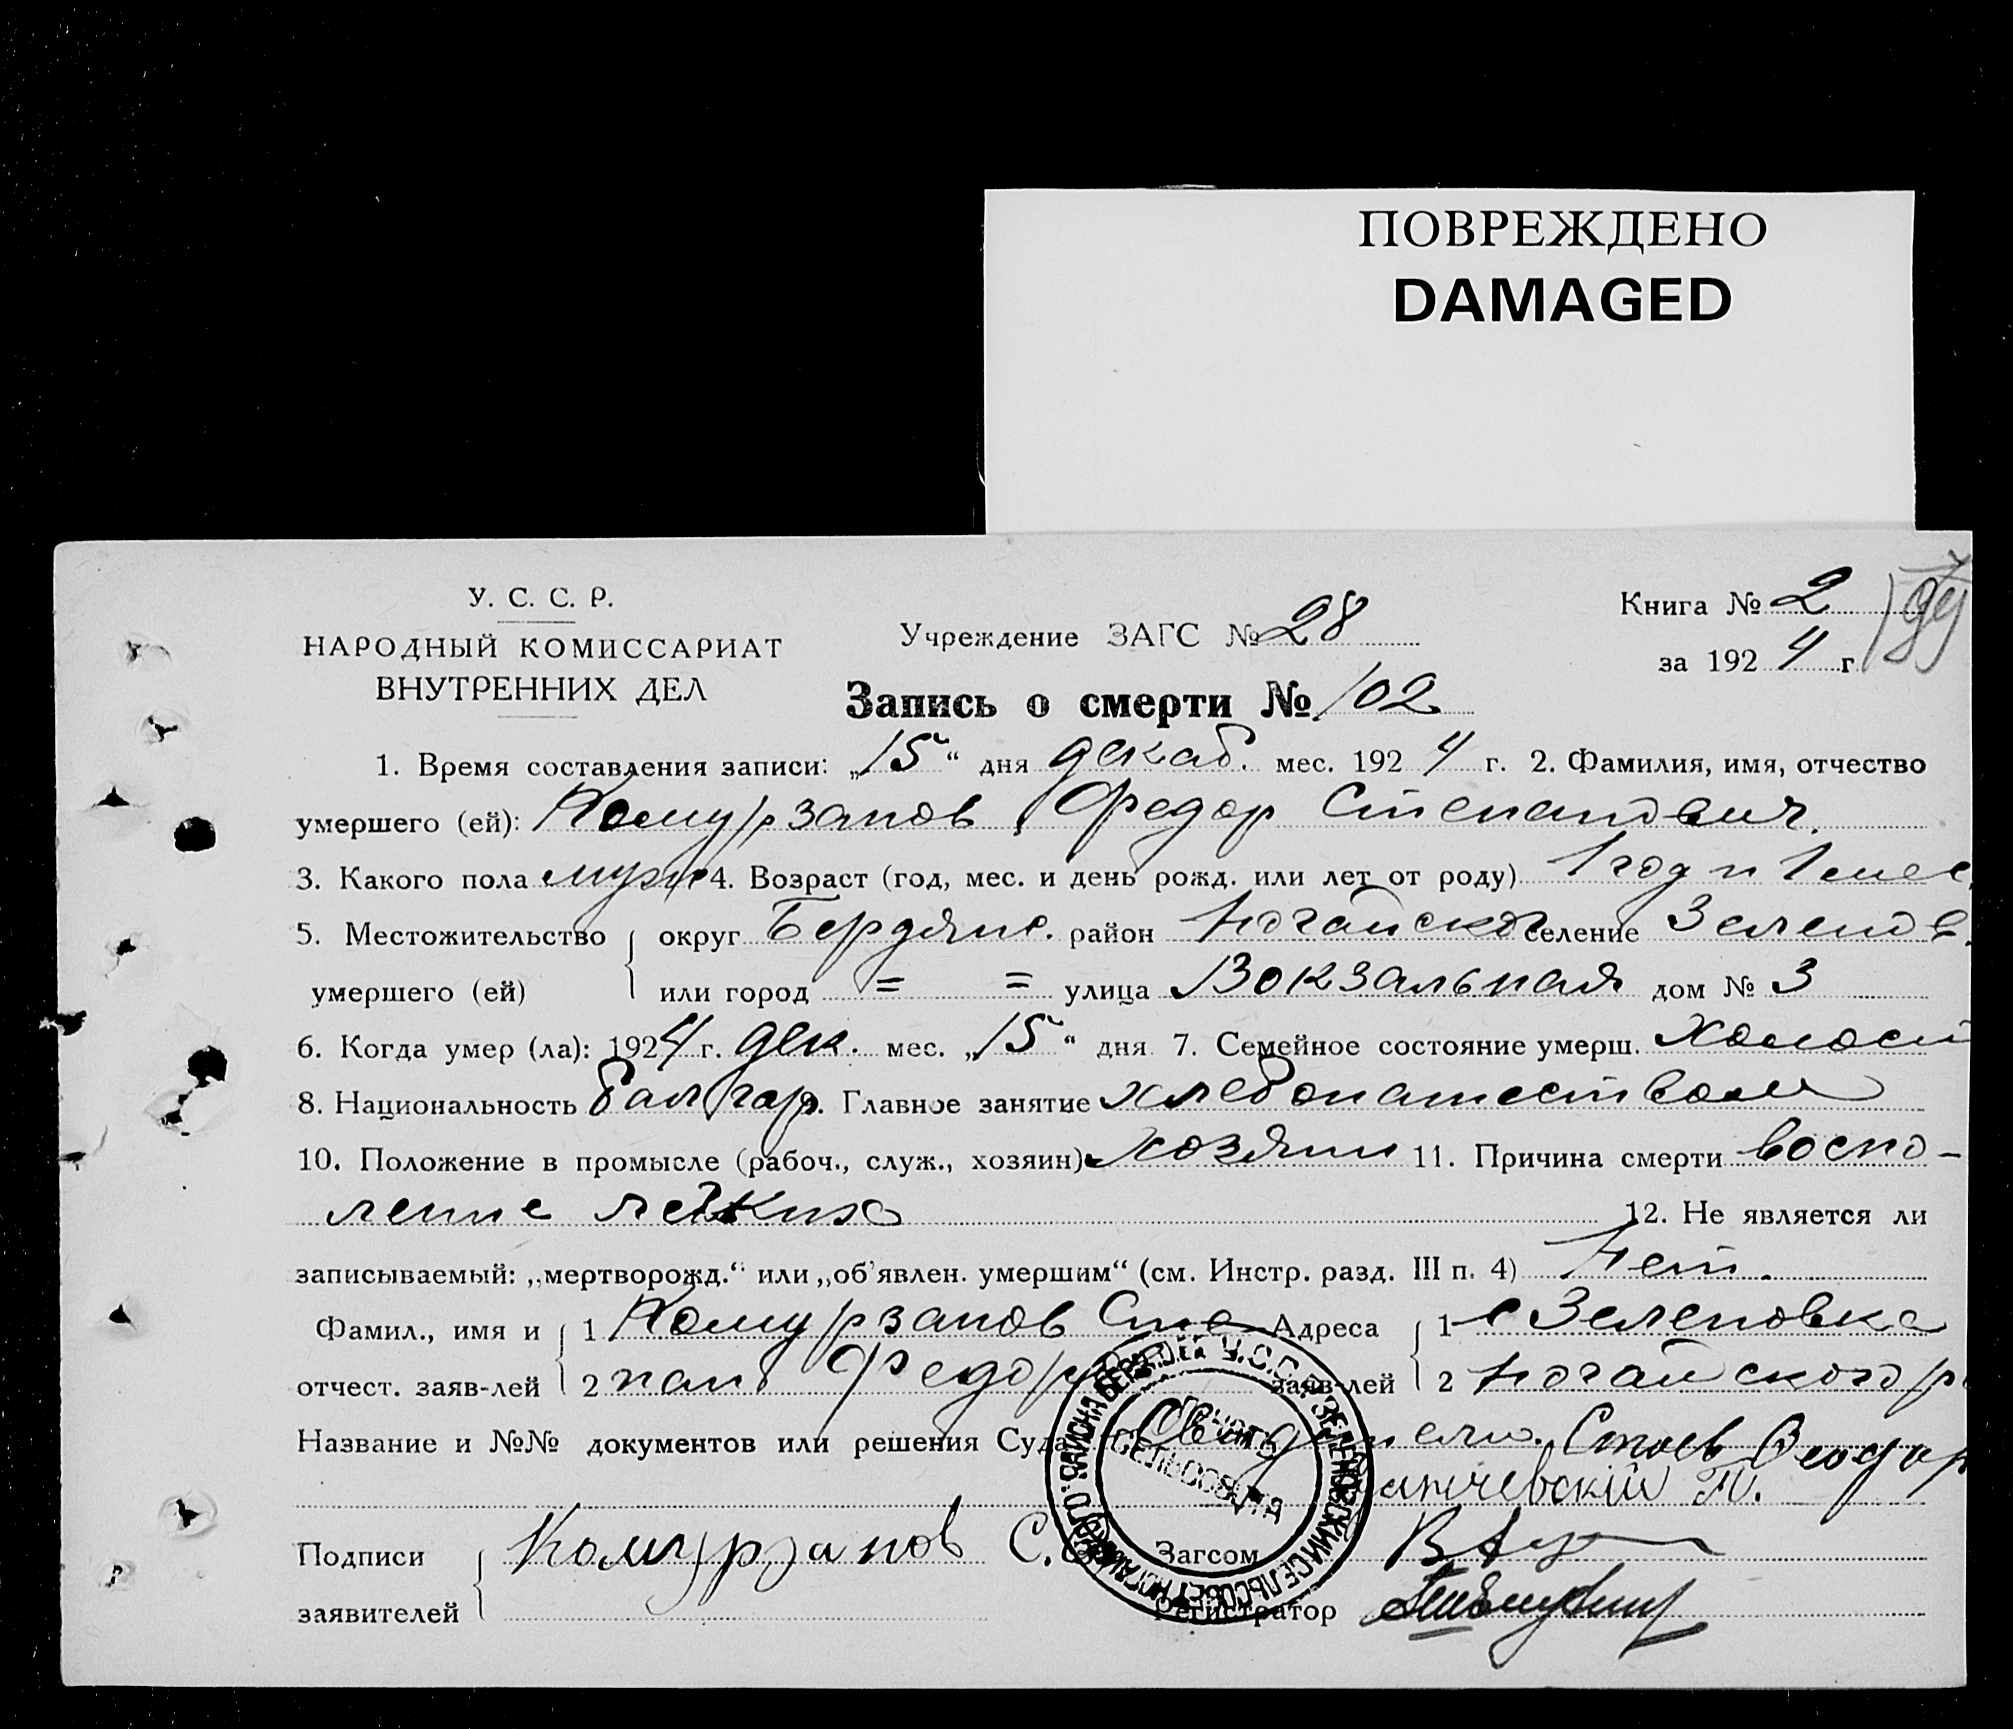 ПОВРЕЖДЕНО
DAMAGED
У. С. С. Р.
НАРОДНЫЙ КОМИССАРИАТ
ВНУТРЕННИХ ДЕЛ
Учреждение ЗАГС № 28
Книга № 2
за 1924 г.
199
Запись о смерти № 102
1. Время составления записи: „15“ дня декаб. мес. 1924 г. 2. Фамилия, имя, отчество
умершего (ей): Комурзанов Федор Степанович.
3. Какого пола муж 4. Возраст (год, мес. и день рожд. или лет от роду) 1 год и 1 мес.
5. Местожительство округ Бердянс. район Ногайског селение Зеленов.
умершего (ей) или город = = улица Вокзальная дом № 3
6. Когда умер (ла): 1924 г. дек. мес. „15“ дня 7. Семейное состояние умерш. холост
8. Национальность балгар. Главное занятие хлебопашеством
10. Положение в промысле (рабоч., служ., хозяин) хозяин 11. Причина смерти воспо-
ление легких 12. Не является ли
записываемый: „мертворожд.“ или „об'явлен. умершим“ (см. Инстр. разд. III п. 4) Нет.
Фамил., имя и 1 Комурзанов Сте- Адреса 1 с Зеленовка
отчест. заяв-лей 2 пан Федор заяв-лей 2 Ногайского р
Название и №№ документов или решения Суда Свидетели. Стоев Феодор
Подписи Комурзанов С. Загсом
заявителей Регистратор
У.С.С.Р. ЗЕЛЕНОВСКИЙ СЕЛЬСОВЕТ НОГАЙСКОГО РАЙОНА БЕРД.
ПЕЧАТЬ СЕЛЬСОВЕТА